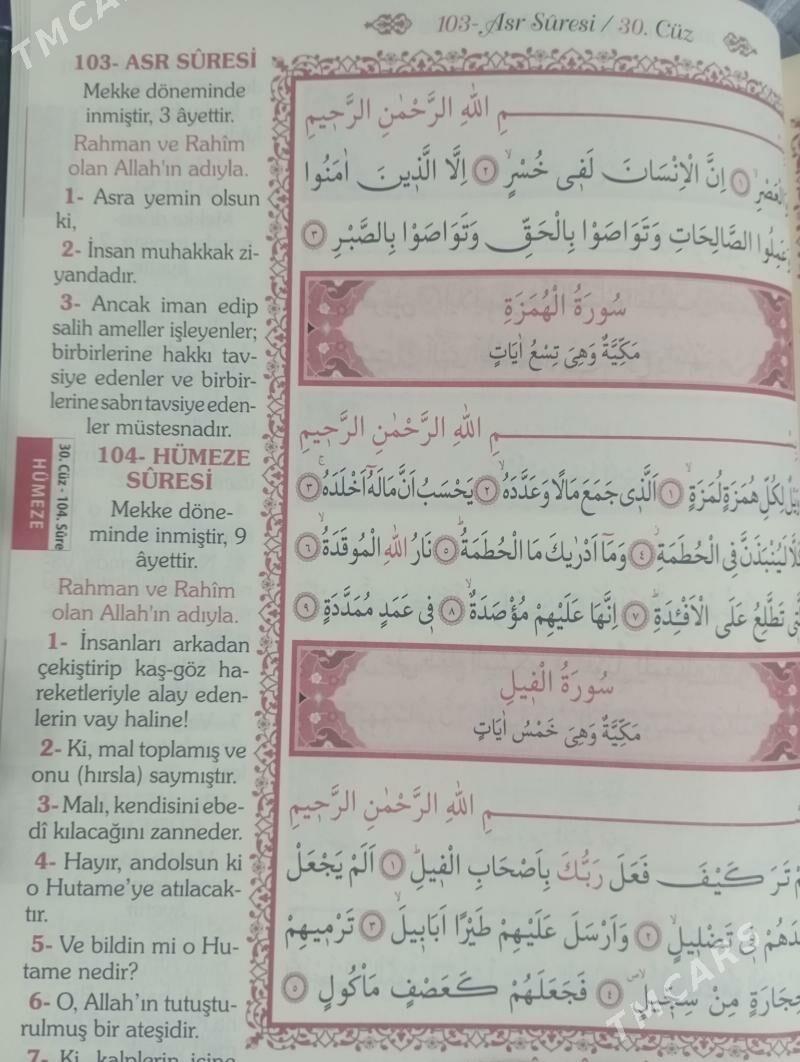 TMCARS
103- Asr Sûresi / 30. Cüz
103- ASR SÛRESİ
Mekke döneminde
inmiştir, 3 âyettir.
Rahman ve Rahîm
olan Allah'ın adıyla.
1- Asra yemin olsun
ki,
2- İnsan muhakkak zi-
yandadır.
3- Ancak iman edip
salih ameller işleyenler;
birbirlerine hakkı tav-
siye edenler ve birbir-
lerine sabrı tavsiye eden-
ler müstesnadır.
104- HÜMEZE
SÛRESİ
Mekke döne-
minde inmiştir, 9
âyettir.
Rahman ve Rahîm
olan Allah'ın adıyla.
1- İnsanları arkadan
çekiştirip kaş-göz ha-
reketleriyle alay eden-
lerin vay haline!
2- Ki, mal toplamış ve
onu (hırsla) saymıştır.
3- Malı, kendisini ebe-
dî kılacağını zanneder.
4- Hayır, andolsun ki
o Hutame'ye atılacak-
tır.
5- Ve bildin mi o Hu-
tame nedir?
6- O, Allah'ın tutuştu-
rulmuş bir ateşidir.
7- Ki, kalplerin içine
30. Cüz - 104. Sûre
HÜMEZE
مِ اللّٰهِ الرَّحْمٰنِ الرَّحِيمِ
الْعَصْرِۙ ﴿١﴾ اِنَّ الْاِنْسَانَ لَفٖى خُسْرٍۙ ﴿٢﴾ اِلَّا الَّذٖينَ اٰمَنُوا
عَمِلُوا الصَّالِحَاتِ وَتَوَاصَوْا بِالْحَقِّ وَتَوَاصَوْا بِالصَّبْرِ ﴿٣﴾
سُورَةُ الْهُمَزَةِ
مَكِّيَّةٌ وَهِىَ تِسْعُ اٰيَاتٍ
مِ اللّٰهِ الرَّحْمٰنِ الرَّحِيمِ
يْلٌ لِكُلِّ هُمَزَةٍ لُمَزَةٍۙ ﴿١﴾ اَلَّذٖى جَمَعَ مَالًا وَعَدَّدَهُۙ ﴿٢﴾ يَحْسَبُ اَنَّ مَالَهُٓ اَخْلَدَهُۚ ﴿٣﴾
كَلَّا لَيُنْبَذَنَّ فِى الْحُطَمَةِۘ ﴿٤﴾ وَمَٓا اَدْرٰيكَ مَا الْحُطَمَةُۜ ﴿٥﴾ نَارُ اللّٰهِ الْمُوقَدَةُۙ ﴿٦﴾
تٖى تَطَّلِعُ عَلَى الْاَفْـِٔدَةِۜ ﴿٧﴾ اِنَّهَا عَلَيْهِمْ مُؤْصَدَةٌۙ ﴿٨﴾ فٖى عَمَدٍ مُمَدَّدَةٍ ﴿٩﴾
سُورَةُ الْفٖيلِ
مَكِّيَّةٌ وَهِىَ خَمْسُ اٰيَاتٍ
مِ اللّٰهِ الرَّحْمٰنِ الرَّحِيمِ
مْ تَرَ كَيْفَ فَعَلَ رَبُّكَ بِاَصْحَابِ الْفٖيلِۜ ﴿١﴾ اَلَمْ يَجْعَلْ
يْدَهُمْ فٖى تَضْلٖيلٍۙ ﴿٢﴾ وَاَرْسَلَ عَلَيْهِمْ طَيْرًا اَبَابٖيلَۙ ﴿٣﴾ تَرْمٖيهِمْ
حِجَارَةٍ مِنْ سِجّٖيلٍۖ ﴿٤﴾ فَجَعَلَهُمْ كَعَصْفٍ مَأْكُولٍ ﴿٥﴾
TMCARS